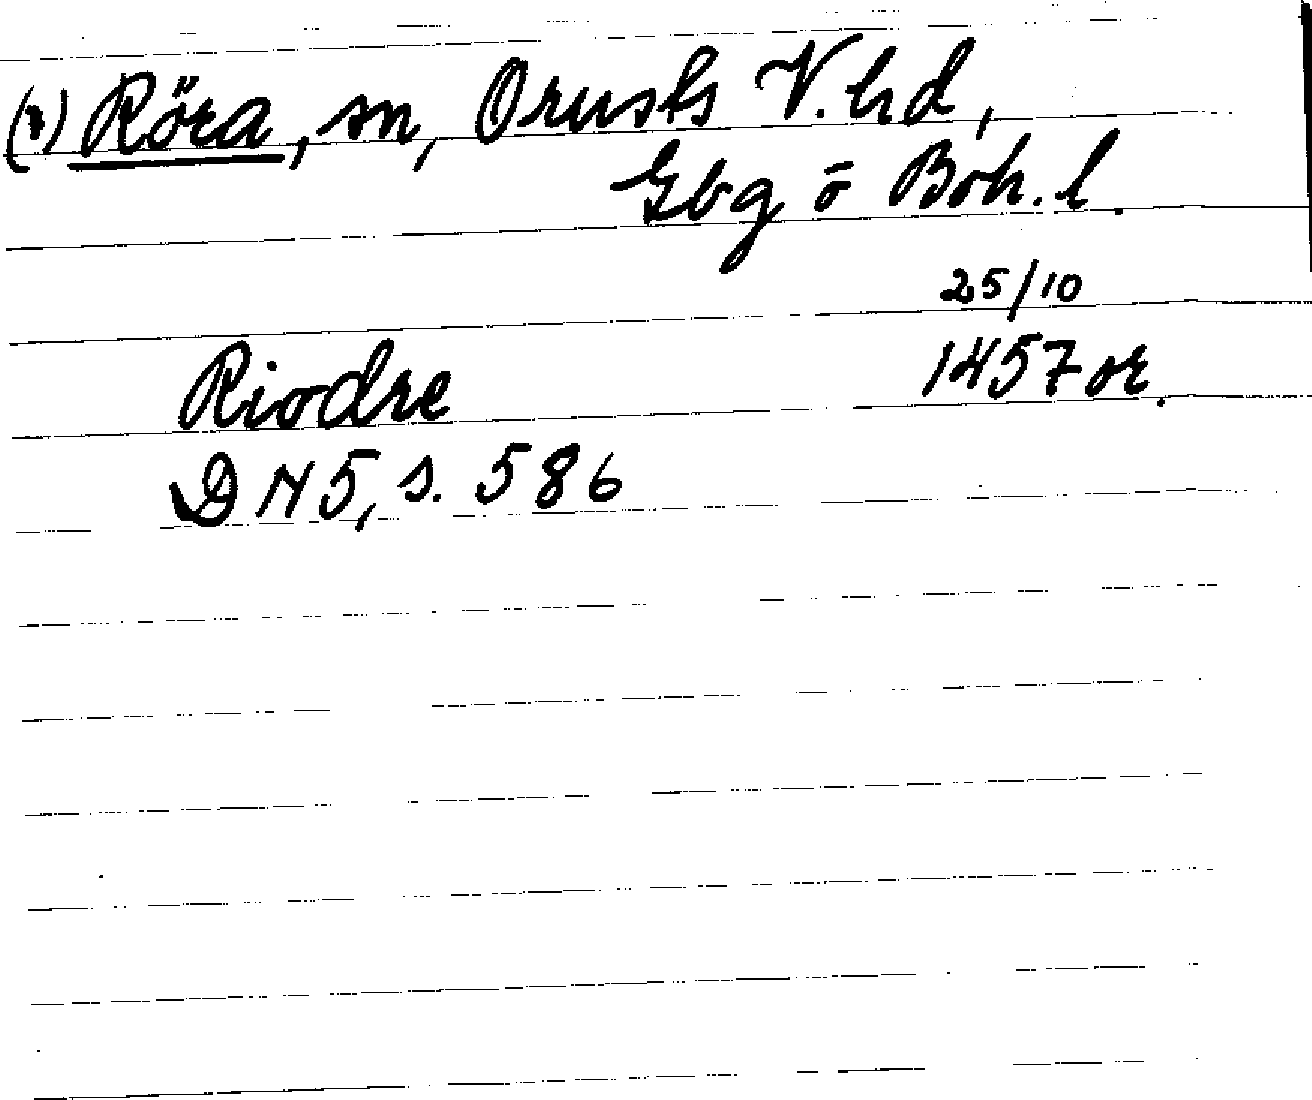 (1) Röra, sn, Orusts V. hd,
Gbg o Boh. l.
25/10
Riodre 1457 or.
DN 5, s. 586